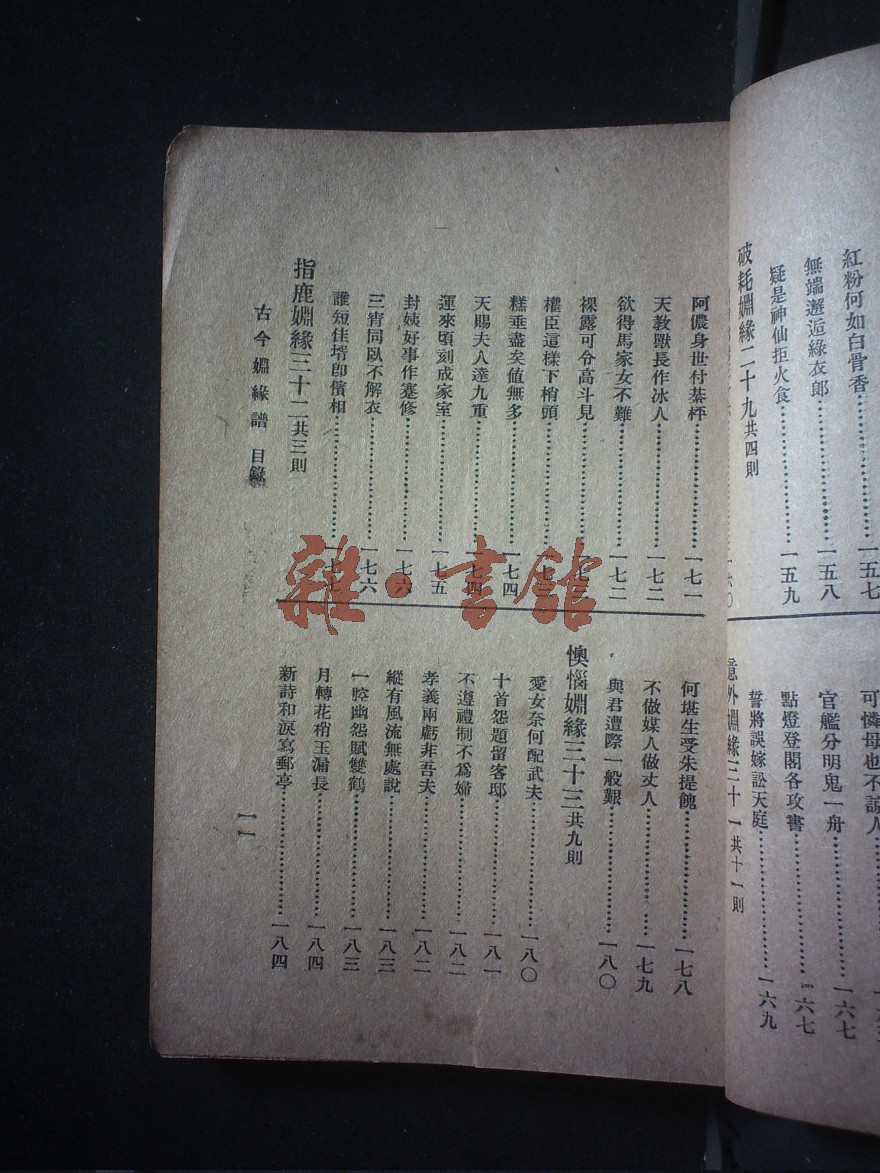 紅粉何如白骨香……一五七
無端邂逅綠衣郎……一五八
疑是神仙拒火食……一五九
破耗婣緣二十九共四則
可憐母也不諒人
官艦分明鬼一舟……一六七
點燈登閣各攻書……一六七
誓將誤嫁訟天庭……一六九
意外婣緣三十一共十一則
阿儂身世付棊枰……一七一
天教獸長作冰人……一七二
欲得馬家女不難……一七二
裸露可令高斗見……一七三
權臣這樣下梢頭……一七三
糕垂盡矣値無多……一七四
天賜夫人達九重……一七四
運來頃刻成家室……一七五
封姨好事作蹇修……一七六
三宵同臥不解衣……一七六
誰短佳壻卽儐相……一七七
指鹿婣緣三十二共三則
何堪生受朱提餽……一七八
不做媒人做丈人……一七九
與君遭際一般艱……一八〇
懊惱婣緣三十三共九則
愛女奈何配武夫……一八〇
十首怨題留客邸……一八一
不遵禮制不爲婦……一八二
孝義兩虧非吾夫……一八二
縱有風流無處說……一八三
一腔幽怨賦雙鶴……一八三
月轉花梢玉漏長……一八四
新詩和淚寫郵亭……一八四
古今婣緣譜 目錄
一一
雜·書館